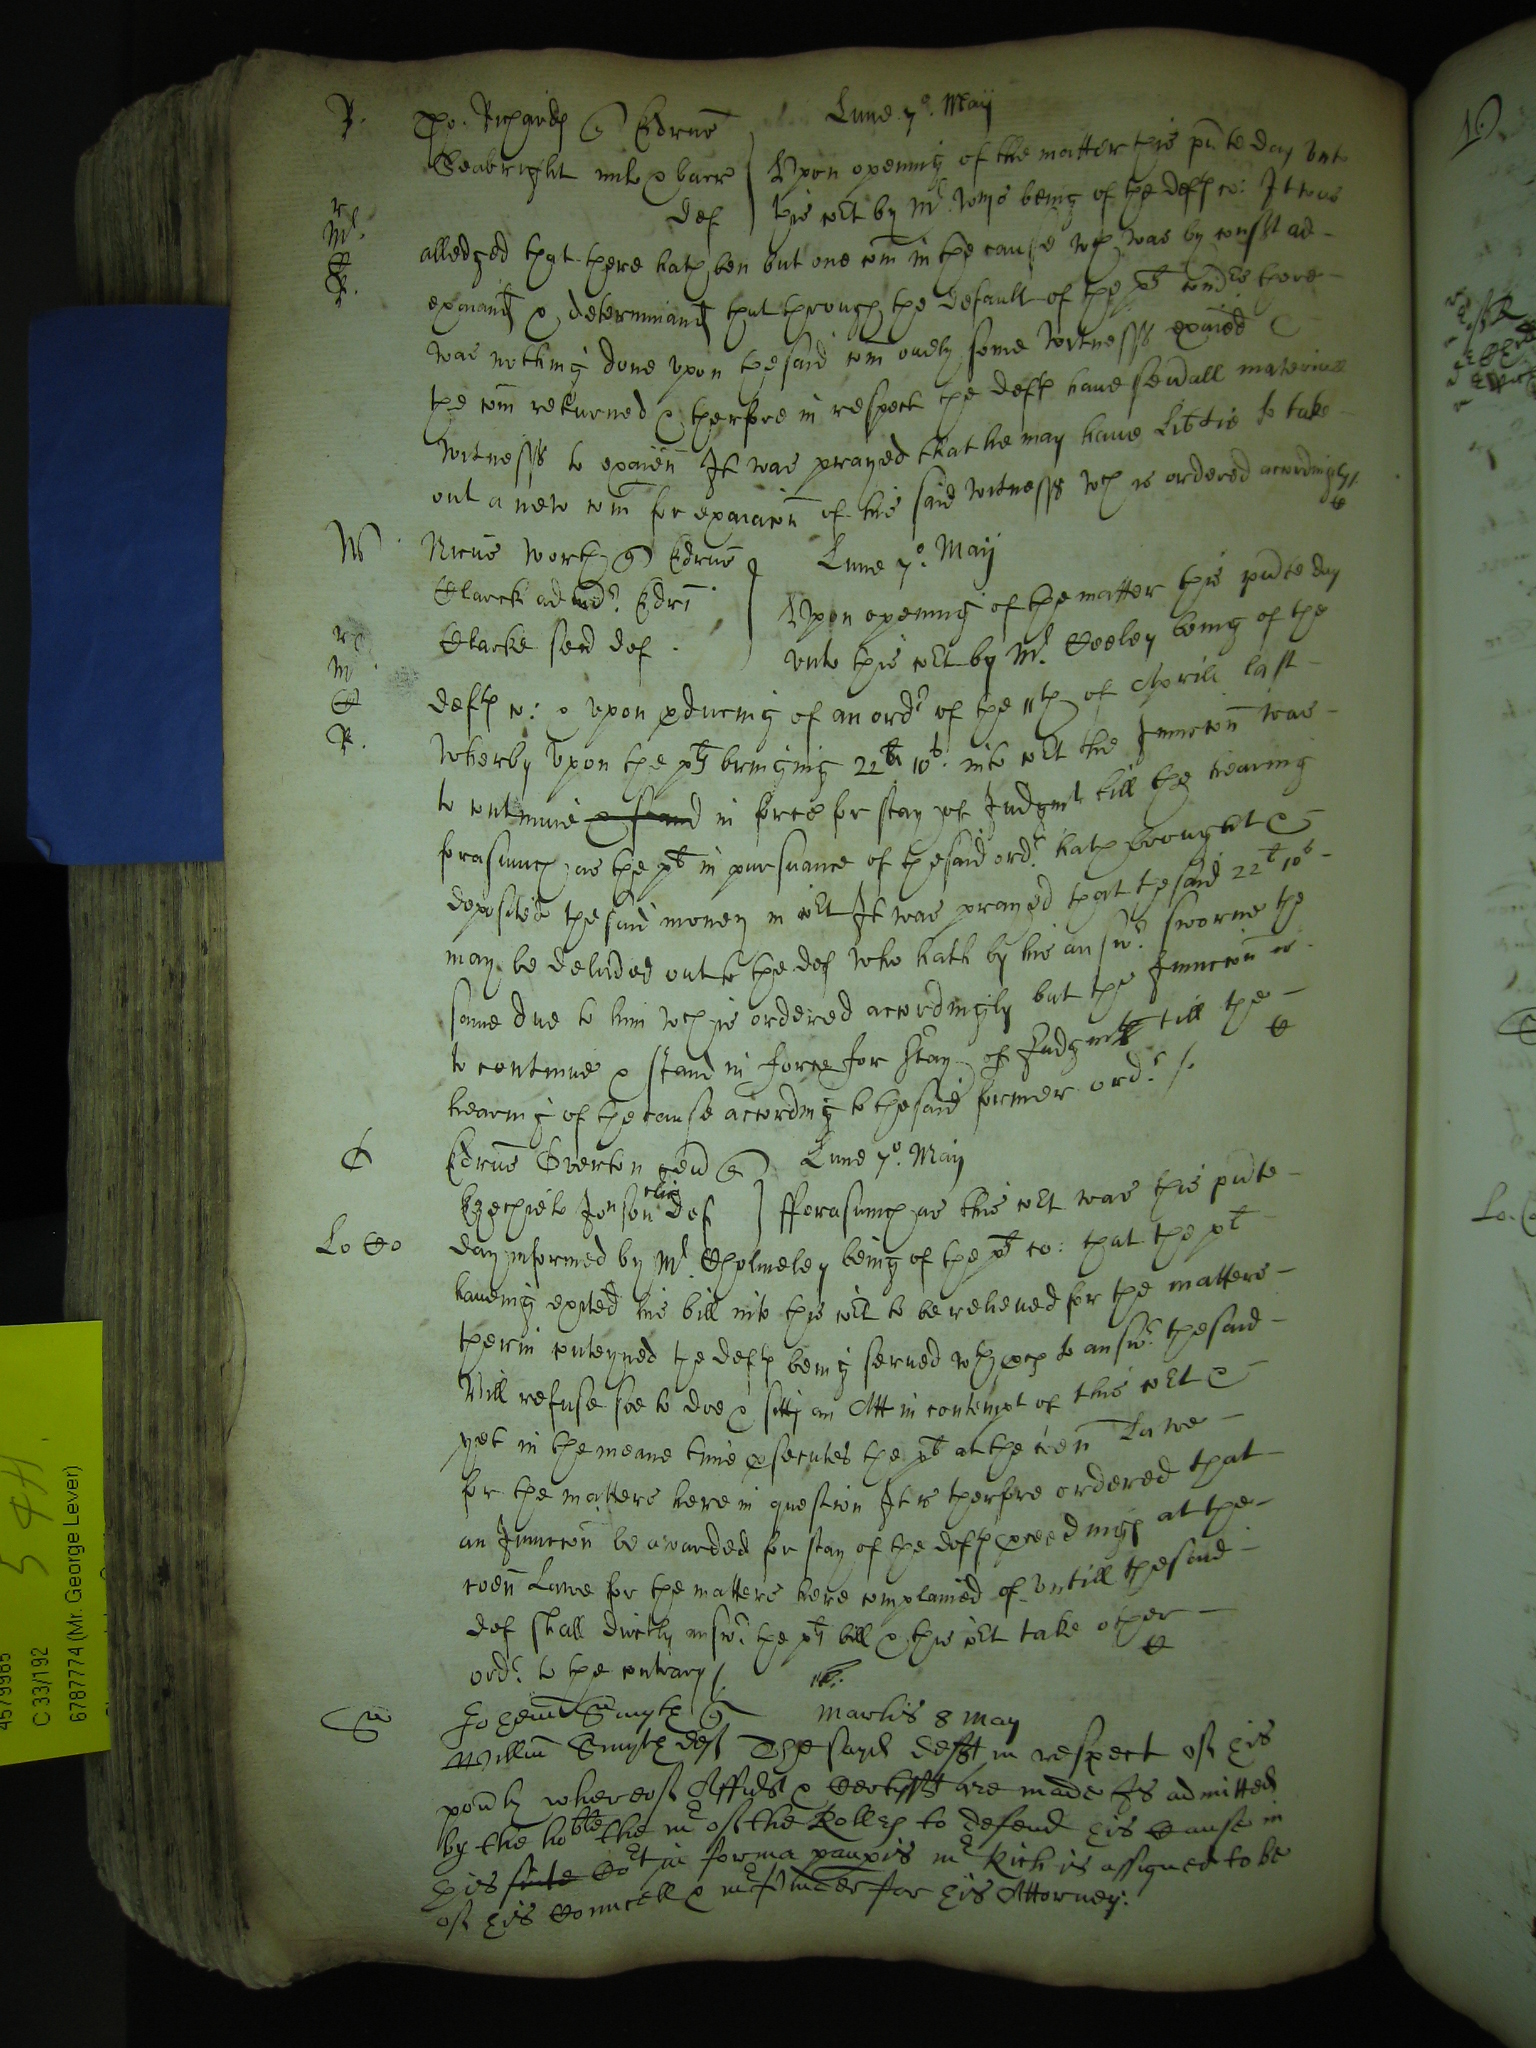 R. Tho. Richards Edrus Lune 7º. Maij
Seabright milt & barr Upon opening of the matter this pnte day unto
def this cort by Mr. being of the defts co: It was
alledged that there hath ben but one com in the cause wch was by consent ad
examiand & determinand that through the default of the plt there
was nothing done upon the said com onely some witnesses exaied &
the com returned & therfore in respect the deft have severall materiall
witnesses to exaien It was prayed that he may have libtie to take
out a new com for exaiacon of his said witnesses wch is ordered accordingly
W Nicus Worth Edrus Lune 7º. Maij
Clarck ad Edri Upon opening of the matter this pnte day
Clarke sen def unto this cort by Mr. Seeley being of the
defts co: & upon pducing of an ordr of the 11th of Aprill last
Wherby upon the plts bringing 22li 10s. into cort the Iniunccon was
to continue & stand in force for stay of Judgmt till the hearing
forasmuch as the plt in pursuance of the said ordr. hath brought &
deposited the said money in cort It was prayed that the said 22l 10s
may be delivered out to the def who hath by his answr. sworne the
same due to him wch is ordered accordingly but the Iniunccon is
to continue & stand in force for stay of Judgmt till the
hearing of the cause according to the said former ordr.
Edrus Overton Lune 7º. Maij
Ezechiele Jonson cler def fforasmuch as this cort was this pnte
Lo Co day informed by Mr. Cholmeley being of the plts co: that the plt
haveing exited his bill into this cort to be relieved for the matters
therin conteyned the deft being served wth pces to answr. the said
bill refuse soe to doe & sitts an Att in contempt of this cort &
yet in the meane time psecutes the plt at the coen Lawe
for the matters here in question It is therfore ordered that
an Iniunccon be awarded for stay of the defts pceedings at the
coen Lawe for the matters here complained of untill the said
def shall dirctly answr. the plts bill & this cort take other
ordr. to the contrary
Smyth Martis 8 May
Willm Smyth deft The sayd defft in respect of his
povty whereof Affidt & Certifft are made Is admitted
by the hoble the mr of the Rolles to defend his Cause in
this suite Cort in forma paupis mr Rich is assigned to be
of his Councell & mr for his Attorney.
4579985
C 33/192
6787774 (Mr. George Lever)